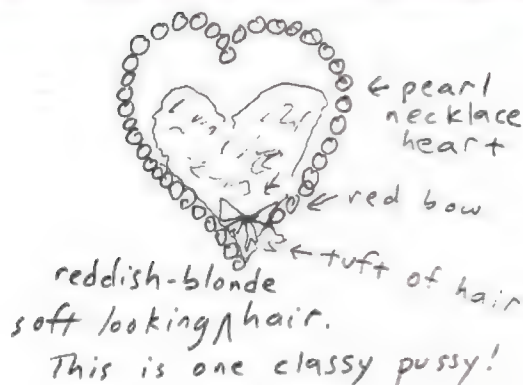 ← pearl
necklace
heart
← red bow
← tuft of hair
reddish-blonde
soft looking ∧ hair.
This is one classy pussy!